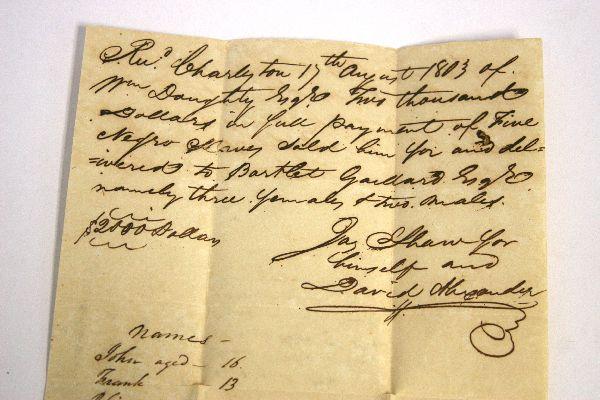 Recd Charleston 17th August 1803 of
Wm Doughty Esqr Two thousand
Dollars in full payment of Five
Negro Slaves Sold him for and del=
=ivered to Bartlet Gaillard Esqr
namely three females & two males.
$2000 Dollars
Jas Shaw for
himself and
David Alexander
names -
John aged - 16
Frank 13